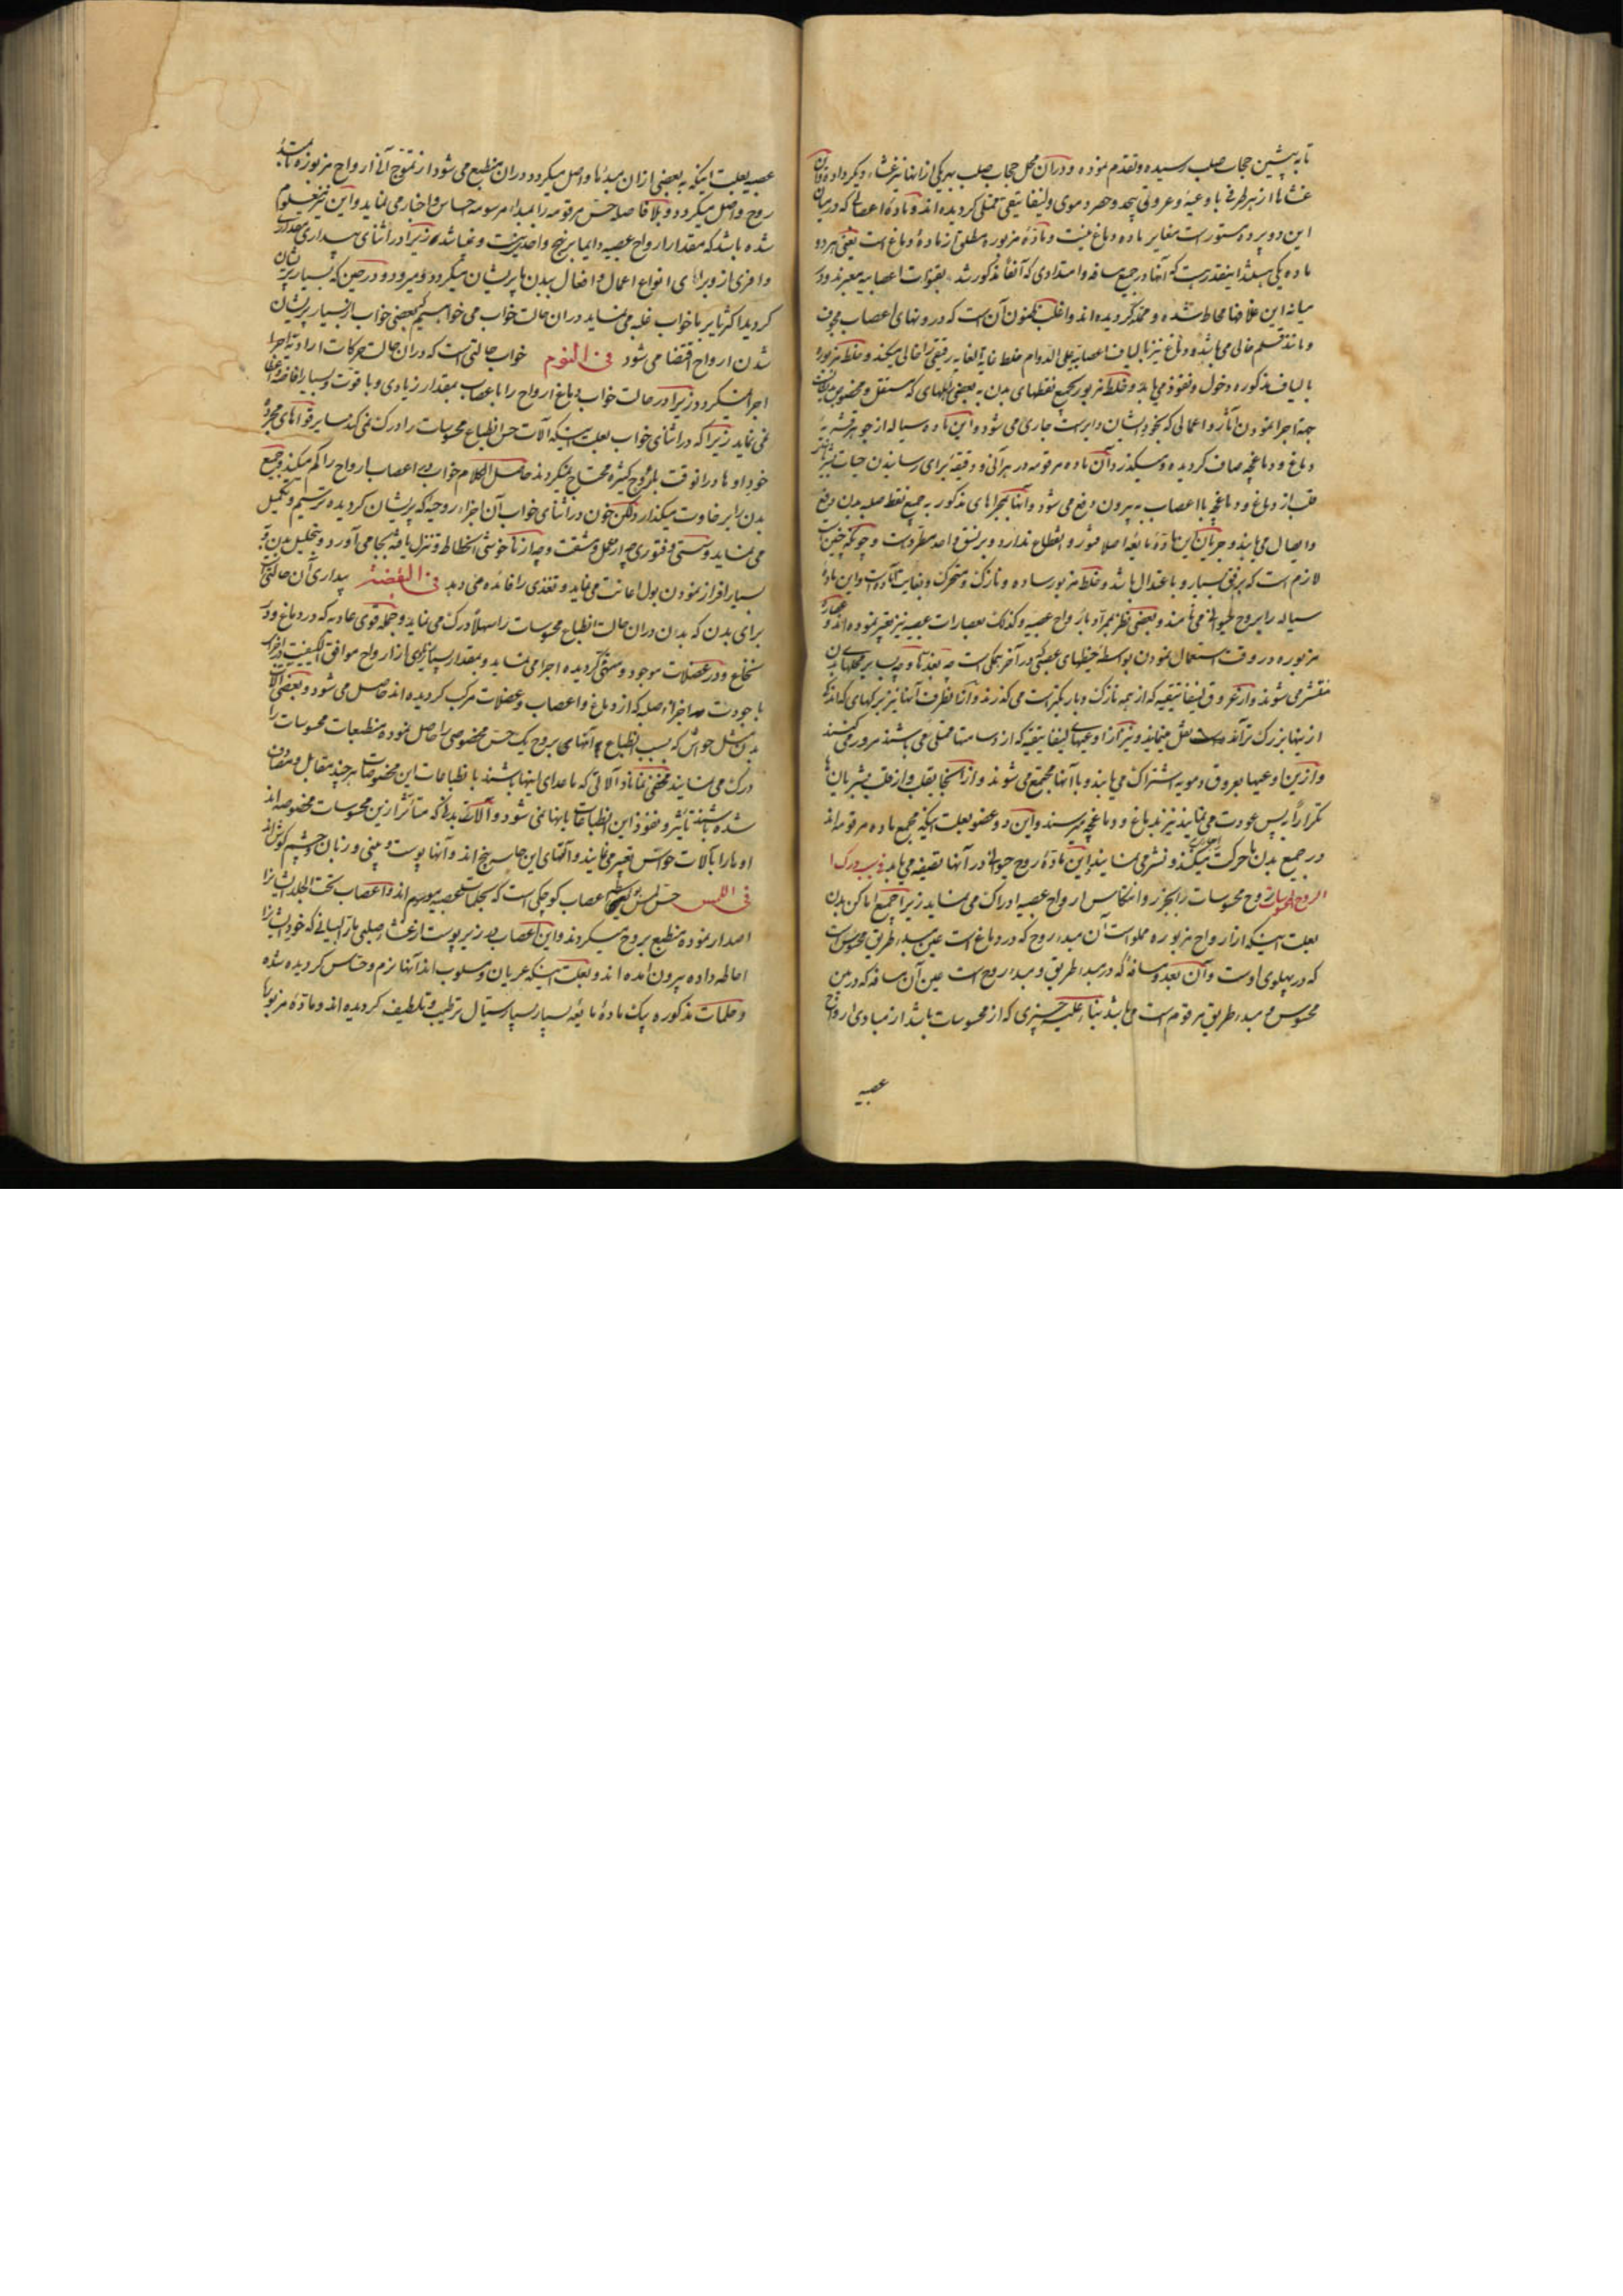 تا به پیشین حجاب صلب رسیده و تقدم نموده و در آن محل حجاب صلب بهر یکی از انها نیز غشاء دیگر داده
غشاها از هر طرفی با وعیهٔ و عروقی بیحد و حصر دموی و لینفاتیقی ممتلی گردیده اند و مادهٔ اعصابی که در میان
این دو پرده مستور است مغایر ماده دماغ نیست و مادهٔ مزبوره مطلق از مادهٔ دماغ است یعنی هر دو
ماده یکی میباشد اینقدر هست که آنها در جمیع مسافه و امتدادی که آنفاً مذکور شد بقنوات اعصابیه معبرند و در
میانه این غلافها محاط شده و ممتد گردیده اند و اغلب ظنون آن است که درونهای اعصاب مجوف
و مانند قلم خالی می باشد و دماغ نیز بالیاف اعصابیه علی الدوام خلط غایة الغایه رقیقی را خالی میکند و خلط مزبوره
بالیاف مذکوره دخول و نفوذ می یابد و خلط مزبور بجمیع نقطهای بدن به بعضی محلهای که مستقل و مخصوص
جهة اجرا نمودن آثار و اعمالی که بخود ایشان دایر است جاری می شود و این ماده سیاله از جوهر قشریه
دماغ و دماغچه صاف گردیده و میگذرد و آن ماده مرقومه در هر آنی و دقیقهٔ برای رسانیدن حیات
قلب از دماغ و دماغچه با اعصاب به بیرون دفع می شود و آنها بمجراهای مذکور به جمیع نقط صلبه بدن دفع
و ایصال می یابند و جریان این مادهٔ مایعه اصلا فتور و انقطاع ندارد و بر نسق واحد مطرد است و چونکه چنین است
لازم است که برفق بسیار و با عتدال باشد و خلط مزبور ساده و نازک و متحرک و بغایت آماده است و این مادهٔ
سیاله را بروح حیوانی می نامند و بعضی نظر بمرآد بارواح عصبیه و کذلک بعصارات عصبیه نیز تعبیر نموده اند و عصارهٔ
مزبوره در وقت استعمال نمودن بواسطهٔ خیطهای عصبی که در آخر همگی است بعد تا و به پس بر محلهای بدن
منتشر می شوند و از عروق لینفاتیقیه که از همه نازک و باریکتر است می گذرند و آنها بطرف آنها نیز برگهای که اندکی
از ینها بزرگ ترند نقل مینمایند و نیز از اوعیهای لینفاتیقیه که از دسامتها ممتلی می باشند مرور میکنند
و از ین اوعیها بعروق دمویه اشتراک می یابند و با آنها مجتمع می شوند و از آنجا بقلب و از قلب بشریان‌ها
تکراراً پس عودت می نمایند نیز بدماغ و دماغچه میرسند و این دو عضو بعلت اینکه مجمع ماده مرقومه اند
در جمیع بدن ها حرکت میکنند و نشر می نمایند این مادهٔ روح حیوانی در آنها تصفیه می یابد فی سبب درک
الروح المحسوسات روح محسوسات را بجزر و انعکاس ارواح عصبیه ادراک می نماید زیرا جمیع اماکن بدن
بعلت اینکه از ارواح مزبوره مملو است آن مبدء روح که در دماغ است عین مبدء طریق محسوس است
که در پهلوی اوست و آن بعد و مسافهٔ که در مبدء طریق و مبدء روح است عین آن مسافه که در بین
محسوس و مبدء طریق مرقوم است می باشد بناء علیه چیزی که از محسوسات باشد از مبادی ارواح
عصبیه
عصبیه بعلت اینکه به بعضی از ان مبدءها واصل میگردد و در ان منطبع می شود از تموج آنی ارواح مزبوره تا بمبدء
روح واصل میگردد و بلا فاصله حس مرقومه را بمبداء مرسومه حساس و اخبار می نماید و این نیز معلوم
شده باشد که مقدار ارواح عصبیه دایما بر نهج واحد نیست و نمیباشد زیرا در اثنای بیداری مقدار
وافری از و برای انواع اعمال و افعال ببدن ها پریشان میگردد و میرود و در حین که بسیار پریشان
گردید اکثریا بر ما خواب غلبه می نماید در ان حالت خواب می خواهیم یعنی خواب از بسیار پریشان
شدن ارواح اقتضا می شود فی النوم خواب حالتی است که در ان حالت حرکات ارادیه اجرا
اجرا نمیگردد زیرا در حالت خواب دماغ ارواح را با عصاب بمقدار زیادی و با قوت و بسیار افاضه و اعطا
نمی نماید زیرا که در اثنای خواب بعلت اینکه آلات حس انطباع محسوسات را درک نمی کند سایر قواهای مجرد
خود او ها در انوقت بلروح کثیره محتاج نمیگردند حاصل الکلام خواب در اعصاب ارواح را کم میکند و جمیع
بدن را بر خاوت میگذارد لکن خون در اثنای خواب آن اجزاء روحیه که پریشان گردیده ترسیم و تکمیل
می نماید و سستی و فتوری چه از عمل و مشقت و چه از ناخوشی انحطاط و تنزل یافته بجا می آورد و بتحلیل بدن و
بسیار افراز نمودن بول اعانت می نماید و تغذی را فائده می دهد فی الیقضة بیداری آن حالتی است
برای بدن که بدن در ان حالت انطباع محسوسات را سهلاً درک می نماید و جمله قوی عادیه که در دماغ و در
نخاع و در عضلات موجود و مستی گردیده اجرا می نماید و بمقدار بسیاری از ارواح موافق الکیفیت در اجزا
با جودت هر اجزاء صلبه که از دماغ و اعصاب و عضلات مرکب گردیده اند حاصل می شود و بعضی آلات
بدن مثل حواس که بسبب انطباع آنهای بروح یک حس مخصوصی را حاصل نموده منطبعات محسوسات را
درک می نمایند مخفی نماناد آلاتی که ماعدای اینها باشند با نطباعات این مخصوصات هر چند مقابل و متصادف
شده باشند تاثیر و نفوذ این انطباعات بانها نمی شود و آلات بدن که متأثر از ین محسوسات مخصوصه اند
او ها را بآلات حواس تعبیر می نمایند و آلتهای این حاسه پنج اند و آنها پوست و بینی و زبان و چشم و گوش اند
فی اللمس حس لمس بواسطهٔ اعصاب کوچکی است که بحلمات عصبیه موسوم اند و اعصاب تحت الجلد ایشان را
اصدار نموده منطبع بروح میگردند و این اعصاب در زیر پوست از غشاء صلبی بازالیانی که خود ایشان را
احاطه داده بیرون آمده اند و بعلت اینکه عریان و مسلوب اند آنها نرم و حساس گردیده شده
و حلمات مذکوره بیک مادهٔ مایعه بسیار بسیار سیال ترطیب و تلطیف گردیده اند و مادهٔ مزبورها